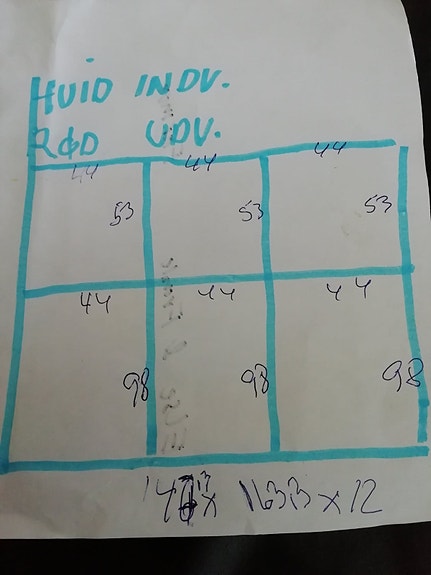 HVID INDV.
RØD UDV.
44 44 44
53 53 53
44 44 44
98 98 98
x 1633 x 12